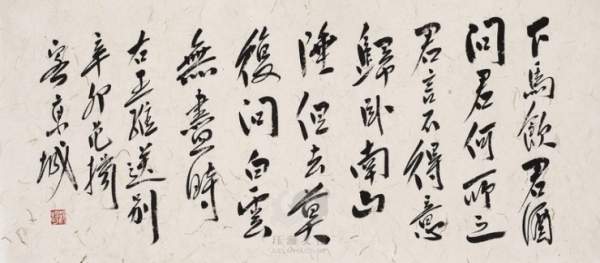 下馬飲君酒
問君何所之
君言不得意
歸臥南山
陲但去莫
復問白雲
無盡時
右王維送別
辛卯范擕
客京城